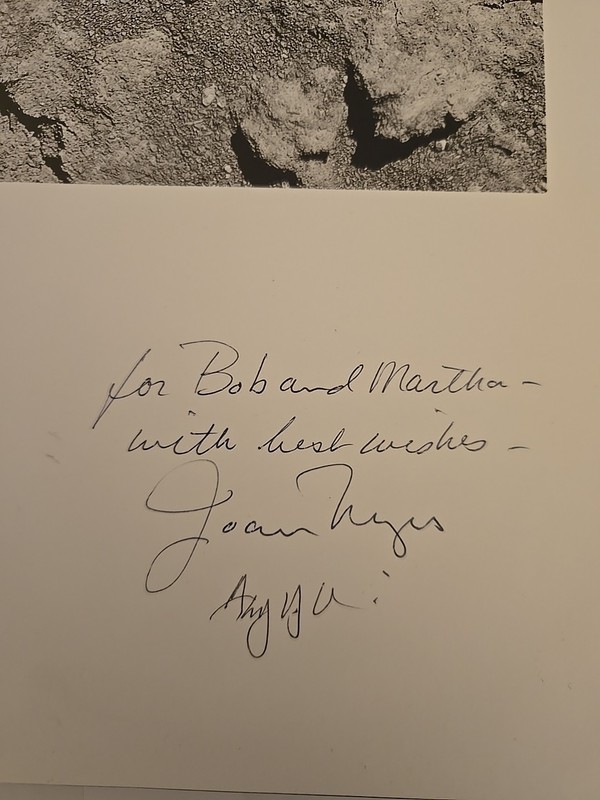 for Bob and Martha –
with best wishes –
Joan Myers